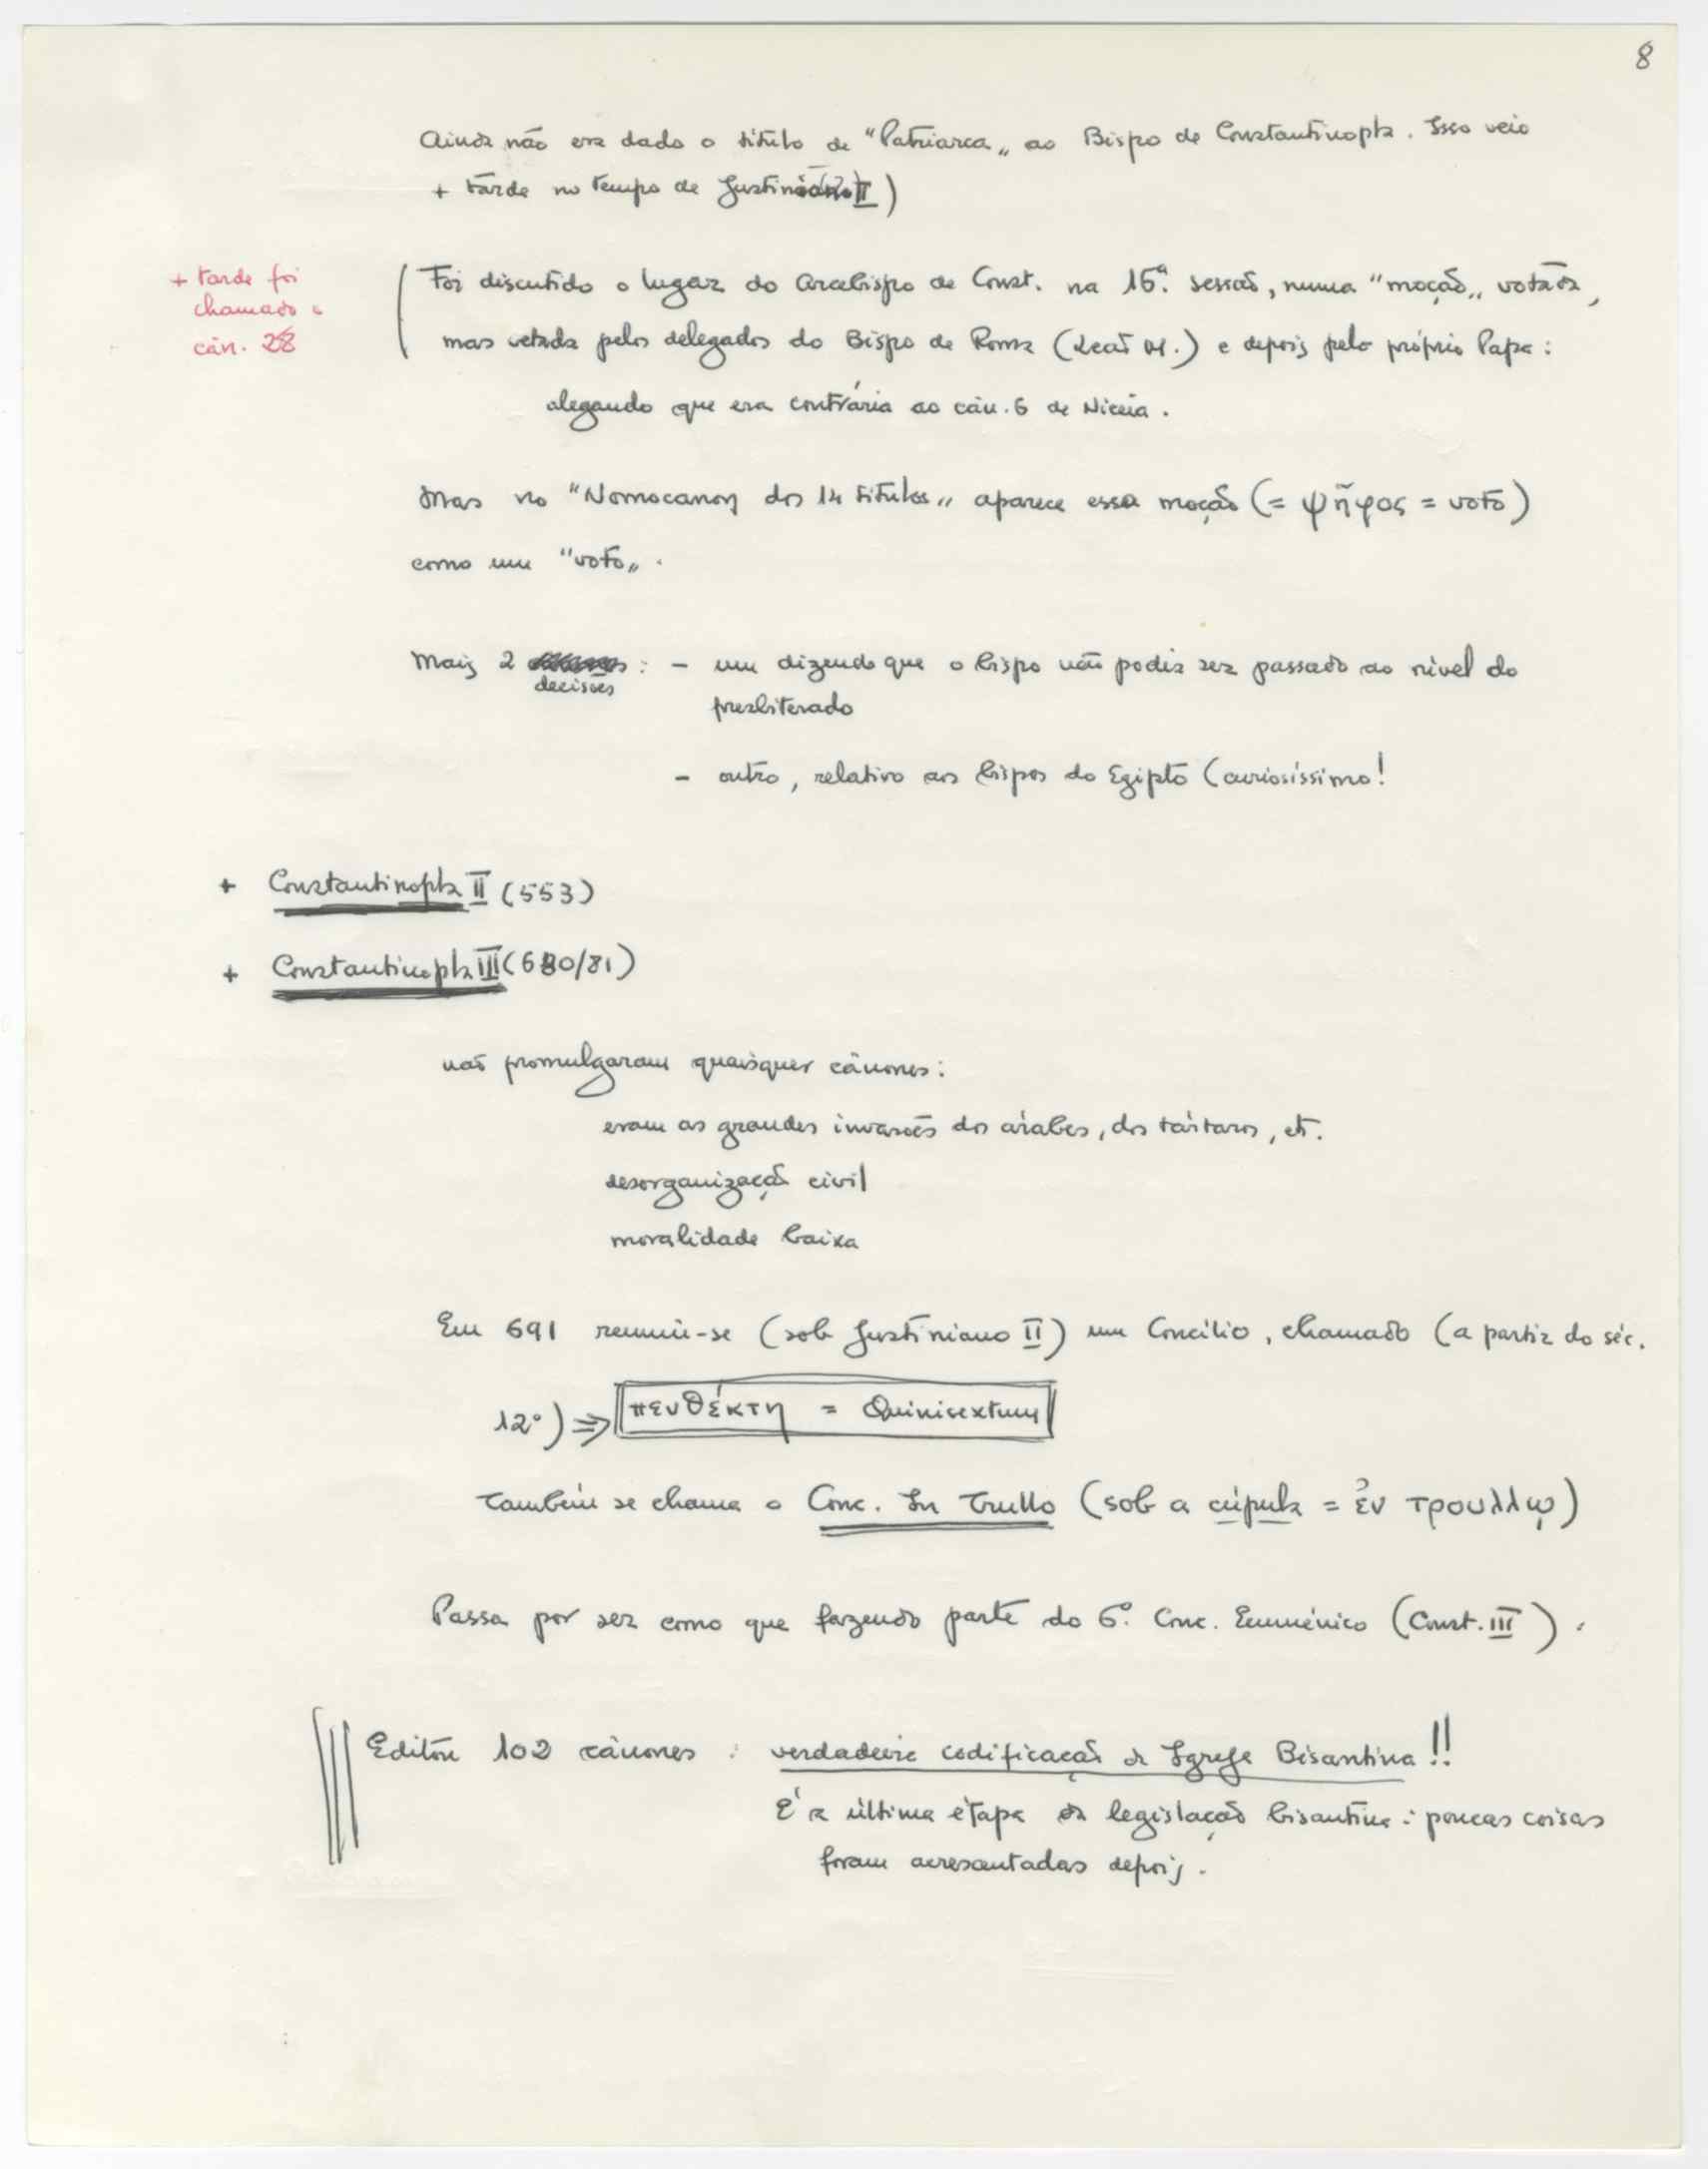 8
Ainda não era dado o título de "Patriarca„ ao Bispo de Constantinopla. Isso veio
+ tarde no tempo de Justiniano II)
+ tarde foi
chamado o
cân. 28
Foi discutido o lugar do Arcebispo de Const. na 15ª. sessão, numa "moção„ votada,
mas vetada pelos delegados do Bispo de Roma (Leão M.) e depois pelo próprio Papa:
alegando que era contrária ao cân. 6 de Niceia.
Mas no "Nomocanon dos 14 títulos„ aparece essa moção (= ψῆφος = voto)
como um "voto„.
Mais 2 decisões : - um dizendo que o bispo não podia ser passado ao nível do
presbiterado
- outro, relativo aos bispos do Egipto (curiosíssimo!
+ Constantinopla II (553)
+ Constantinopla III (680/81)
não promulgaram quaisquer cânones:
eram as grandes invasões dos árabes, dos tártaros, etc.
desorganização civil
moralidade baixa
Em 691 reuniu-se (sob Justiniano II) um Concílio, chamado (a partir do séc.
12º) ⇒ πενθέκτη = Quinisextum
Também se chama o Conc. In Trullo (sob a cúpula = ἐν τρουλλῳ)
Passa por ser como que fazendo parte do 6º. Conc. Ecuménico (Const. III).
Editou 102 cânones : verdadeira codificação da Igreja Bisantina!!
É a última etapa da legislação bisantina: poucas coisas
foram acrescentadas depois.